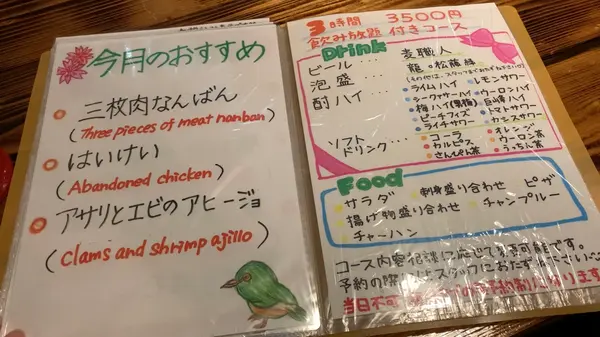 今月のおすすめ
三枚肉なんばん
(Three pieces of meat nanban)
はいけい
(Abandoned chicken)
アサリとエビのアヒージョ
(Clams and shrimp ajillo)
3時間 3500円
飲み放題 付きコース
Drink
ビール・・・ 麦職人
泡盛・・・ 龍・松藤
酎ハイ・・・
ライムハイ レモンサワー
シークヮーサーハイ ウーロンハイ
梅ハイ
トマトサワー
ピーチフィズ
ライチサワー カシスサワー
ソフト
ドリンク・・・
コーラ オレンジ
カルピス ウーロン茶
さんぴん茶 うっちん茶
Food
サラダ 刺身盛り合わせ ピザ
揚げ物盛り合わせ チャンプルー
チャーハン
コース内容 応じて 可能です。
予約の際に スタッフにおたずね
当日不可